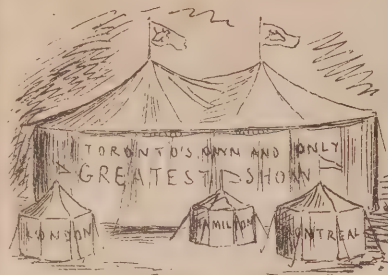 TORONTO'S OWN AND ONLY
GREATEST SHOW
LONDON
HAMILTON
MONTREAL